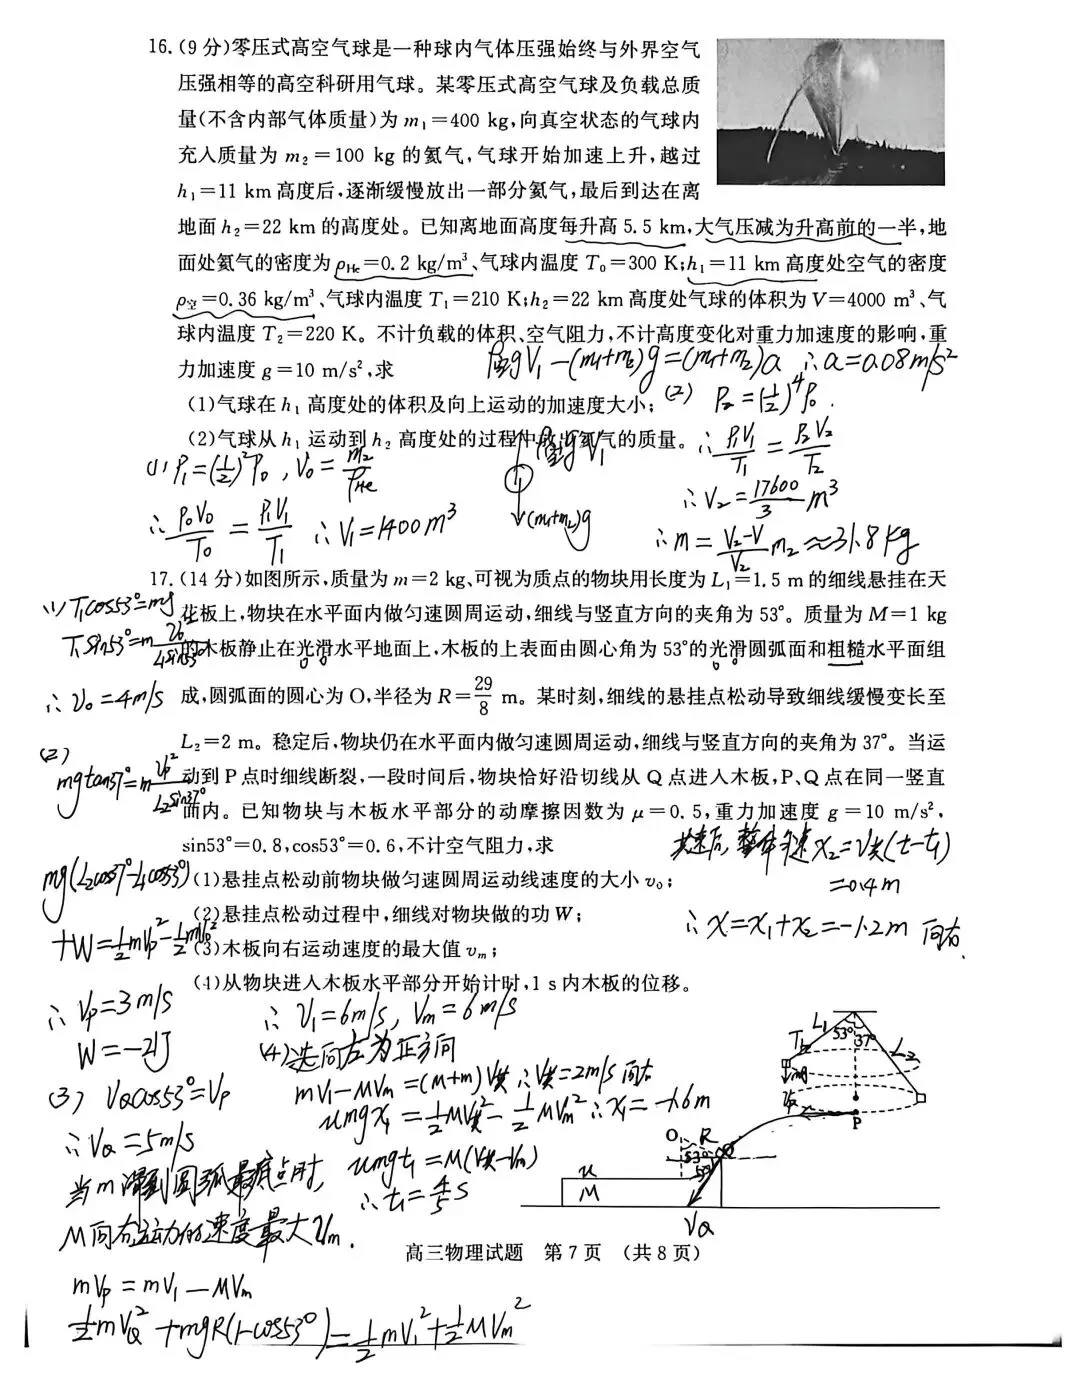 16.(9分)零压式高空气球是一种球内气体压强始终与外界空气
压强相等的高空科研用气球。某零压式高空气球及负载总质
量(不含内部气体质量)为m₁=400 kg,向真空状态的气球内
充入质量为m₂=100 kg的氦气,气球开始加速上升,越过
h₁=11 km高度后,逐渐缓慢放出一部分氦气,最后到达在离
地面h₂=22 km的高度处。已知离地面高度每升高5.5 km,大气压减为升高前的一半,地
面处氦气的密度为ρHe=0.2 kg/m³、气球内温度T₀=300 K;h₁=11 km高度处空气的密度
ρ空=0.36 kg/m³、气球内温度T₁=210 K;h₂=22 km高度处气球的体积为V=4000 m³、气
球内温度T₂=220 K。不计负载的体积、空气阻力,不计高度变化对重力加速度的影响,重
力加速度g=10 m/s²,求
ρ空gV₁-(m₁+m₂)g=(m₁+m₂)a ∴a=0.08m/s²
(1)气球在h₁高度处的体积及向上运动的加速度大小;
(2) P₂=(1/2)⁴P₀.
(2)气球从h₁运动到h₂高度处的过程中放出氦气的质量。
∴P₁V₁/T₁=P₂V₂/T₂
(1) P₁=(1/2)²P₀,V₀=m₂/ρHe
ρ空gV₁
∴P₀V₀/T₀=P₁V₁/T₁ ∴V₁=1400m³
(m₁+m₂)g
∴V₂=17600/3 m³
∴m=V₂-V/V₂ m₂≈31.8kg
17.(14分)如图所示,质量为m=2 kg、可视为质点的物块用长度为L₁=1.5 m的细线悬挂在天
花板上,物块在水平面内做匀速圆周运动,细线与竖直方向的夹角为53°。质量为M=1 kg
的木板静止在光滑水平地面上,木板的上表面由圆心角为53°的光滑圆弧面和粗糙水平面组
成,圆弧面的圆心为O,半径为R=29/8 m。某时刻,细线的悬挂点松动导致细线缓慢变长至
L₂=2 m。稳定后,物块仍在水平面内做匀速圆周运动,细线与竖直方向的夹角为37°。当运
动到P点时细线断裂,一段时间后,物块恰好沿切线从Q点进入木板,P、Q点在同一竖直
面内。已知物块与木板水平部分的动摩擦因数为μ=0.5,重力加速度g=10 m/s²,
sin53°=0.8,cos53°=0.6,不计空气阻力,求
(1)悬挂点松动前物块做匀速圆周运动线速度的大小v₀;
(2)悬挂点松动过程中,细线对物块做的功W;
(3)木板向右运动速度的最大值vₘ;
(4)从物块进入木板水平部分开始计时,1 s内木板的位移。
(1) T₁cos53°=mg
T₁sin53°=m v₀²/L₁sin53°
∴v₀=4m/s
(2)
mgtan37°=m vP²/L₂sin37°
mg(L₂cos37°-L₁cos53°)
+W=1/2mvP²-1/2mv₀²
∴vP=3m/s
W=-21J
(3) vQcos53°=vP
∴vQ=5m/s
当m滑到圆弧最底点时,
M向右运动的速度最大vₘ.
mvP=mv₁-Mvₘ
1/2mvQ²+mgR(1-cos53°)=1/2mv₁²+1/2Mvₘ²
∴v₁=6m/s,vₘ=6m/s
(4)选向左为正方向
mv₁-Mvₘ=(M+m)v共 ∴v共=2m/s 向左
μmgx₁=1/2Mv共²-1/2Mvₘ² ∴x₁=-1.6m
μmgt₁=M(v共-vₘ)
∴t₁=4/5s
共速后,整体匀速x₂=v共(t-t₁)
=0.4m
∴x=x₁+x₂=-1.2m 向右.
L₁
53°
37°
L₂
T₁
mg
vP
P
O
R
53°
Q
53°
μ
M
vQ
高三物理试题 第7页 (共8页)